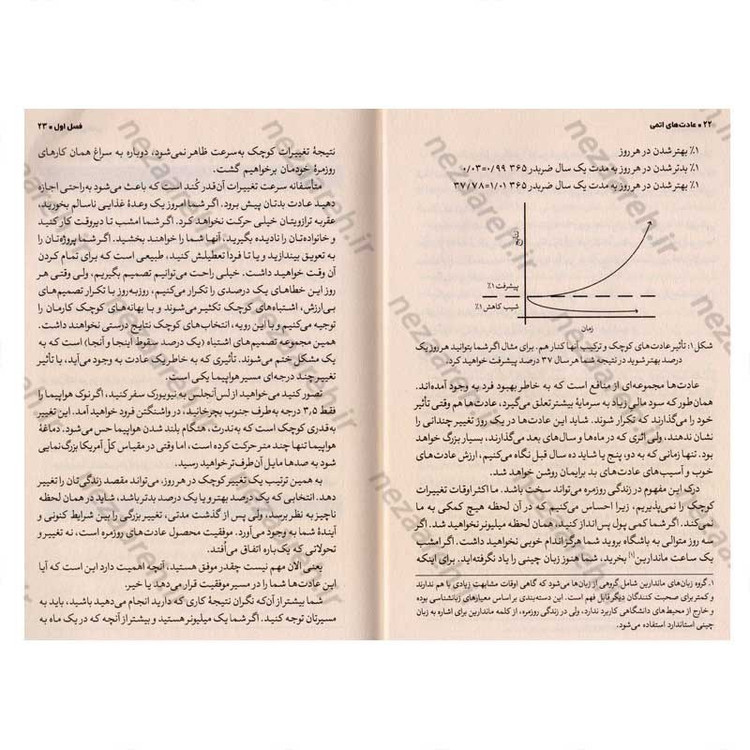 ۲۲ • عادت‌های اتمی
۱٪ بهتر شدن در هر روز
۱٪ بدتر شدن در هر روز به مدت یک سال ضربدر ۳۶۵ ۰/۹۹=۰/۰۳
۱٪ بهتر شدن در هر روز به مدت یک سال ضربدر ۳۶۵ ۱/۰۱=۳۷/۷۸
نتایج
پیشرفت ۱٪
شیب کاهش ۱٪
زمان
شکل ۱: تأثیر عادت‌های کوچک و ترکیب آنها کنار هم. برای مثال اگر شما بتوانید هر روز یک
درصد بهتر شوید در نتیجه شما هر سال ۳۷ درصد پیشرفت خواهید کرد.
عادت‌ها مجموعه‌ای از منافع است که به خاطر بهبود فرد به وجود آمده‌اند.
همان‌طور که سود مالی زیاد به سرمایهٔ بیشتر تعلق می‌گیرد، عادت‌ها هم وقتی تأثیر
خود را می‌گذارند که تکرار شوند. شاید این عادت‌ها در یک روز تغییر چندانی را
نشان ندهند، ولی اثری که در ماه‌ها و سال‌های بعد می‌گذارند، بسیار بزرگ خواهد
بود. تنها زمانی که به دو، پنج یا شاید ده سال قبل نگاه می‌کنیم، ارزش عادت‌های
خوب و آسیب‌های عادت‌های بد برایمان روشن خواهد شد.
درک این مفهوم در زندگی روزمره می‌تواند سخت باشد. ما اکثر اوقات تغییرات
کوچک را نمی‌پذیریم، زیرا احساس می‌کنیم که در آن لحظه هیچ کمکی به ما
نمی‌کند. اگر شما کمی پول پس‌انداز کنید، همان لحظه میلیونر نخواهید شد. اگر
سه روز متوالی به باشگاه بروید شما هرگز اندام خوبی نخواهید داشت. اگر امشب
یک ساعت ماندارین[۱] بخرید، شما هنوز زبان چینی را یاد نگرفته‌اید. برای اینکه
۱. گروه زبان‌های ماندارین شامل گروهی از زبان‌ها می‌شود که گاهی اوقات مشابهت زیادی با هم ندارند
و کمتر برای صحبت کنندگان دیگر قابل فهم است. این دسته‌بندی بر اساس معیارهای زبانشناسی بوده
و خارج از محیط‌های دانشگاهی کاربرد ندارد، ولی در زندگی روزمره، از کلمه ماندارین برای اشاره به زبان
چینی استاندارد استفاده می‌شود.
فصل اول • ۲۳
نتیجهٔ تغییرات کوچک به‌سرعت ظاهر نمی‌شود، دوباره به سراغ همان کارهای
روزمرهٔ خودمان برخواهیم گشت.
متأسفانه سرعت تغییرات آن‌قدر کُند است که باعث می‌شود به‌راحتی اجازه
دهید عادت بدتان پیش برود. اگر شما امروز یک وعدهٔ غذایی ناسالم بخورید،
عقربه ترازویتان خیلی حرکت نخواهد کرد. اگر شما امشب تا دیروقت کار کنید
و خانواده‌تان را نادیده بگیرید، آنها شما را خواهند بخشید. اگر شما پروژه‌تان را
به تعویق بیندازید و یا تا فردا تعطیلش کنید، طبیعی است که برای تمام کردن
آن وقت خواهید داشت. خیلی راحت می‌توانیم تصمیم بگیریم، ولی وقتی هر
روز این خطاهای یک درصدی را تکرار می‌کنیم، روزبه‌روز با تکرار تصمیم‌های
بی‌ارزش، اشتباه‌های کوچک تکثیر می‌شوند و با بهانه‌های کوچک کارمان را
توجیه می‌کنیم و با این رویه، انتخاب‌های کوچک نتایج درستی نخواهند داشت.
همین مجموعه تصمیم‌های اشتباه (یک درصد سقوط اینجا و آنجا) است که به
یک مشکل ختم می‌شوند. تأثیری که به خاطر یک عادت به وجود می‌آید، با تأثیر
تغییر چند درجه‌ای مسیر هواپیما یکی است.
تصور کنید می‌خواهید از لس آنجلس به نیویورک سفر کنید، اگر نوک هواپیما
فقط ۳٫۵ درجه به‌طرف جنوب بچرخانید، در واشنگتن فرود خواهید آمد. این تغییر
به‌قدری کوچک است که به‌ندرت، هنگام بلند شدن هواپیما حس می‌شود. دماغهٔ
هواپیما تنها چند متر حرکت کرده است، اما وقتی در مقیاس کلّ آمریکا بزرگ‌نمایی
شود به صدها مایل آن‌طرف‌تر خواهید رسید.
به همین ترتیب یک تغییر کوچک در هر روز، می‌تواند مقصد زندگی‌تان را تغییر
دهد. انتخابی که یک درصد بهتر و یا یک درصد بدتر باشد، شاید در همان لحظه
ناچیز به نظر برسد، ولی پس از گذشت مدتی، تغییر بزرگی را بین شرایط کنونی و
آیندهٔ شما به وجود می‌آورد. موفقیت محصول عادت‌های روزمره است، نه تغییر و
تحولاتی که یک‌باره اتفاق می‌اُفتد.
یعنی الان مهم نیست چقدر موفق هستید، آنچه اهمیت دارد این است که آیا
این عادت‌ها شما را در مسیر موفقیت قرار می‌دهد یا خیر.
شما بیشتر از آن‌که نگران نتیجهٔ کاری که دارید انجام می‌دهید باشید، باید به
مسیرتان توجه کنید. اگر شما یک میلیونر هستید و بیشتر از آنچه که در یک ماه به
nezaareh.ir